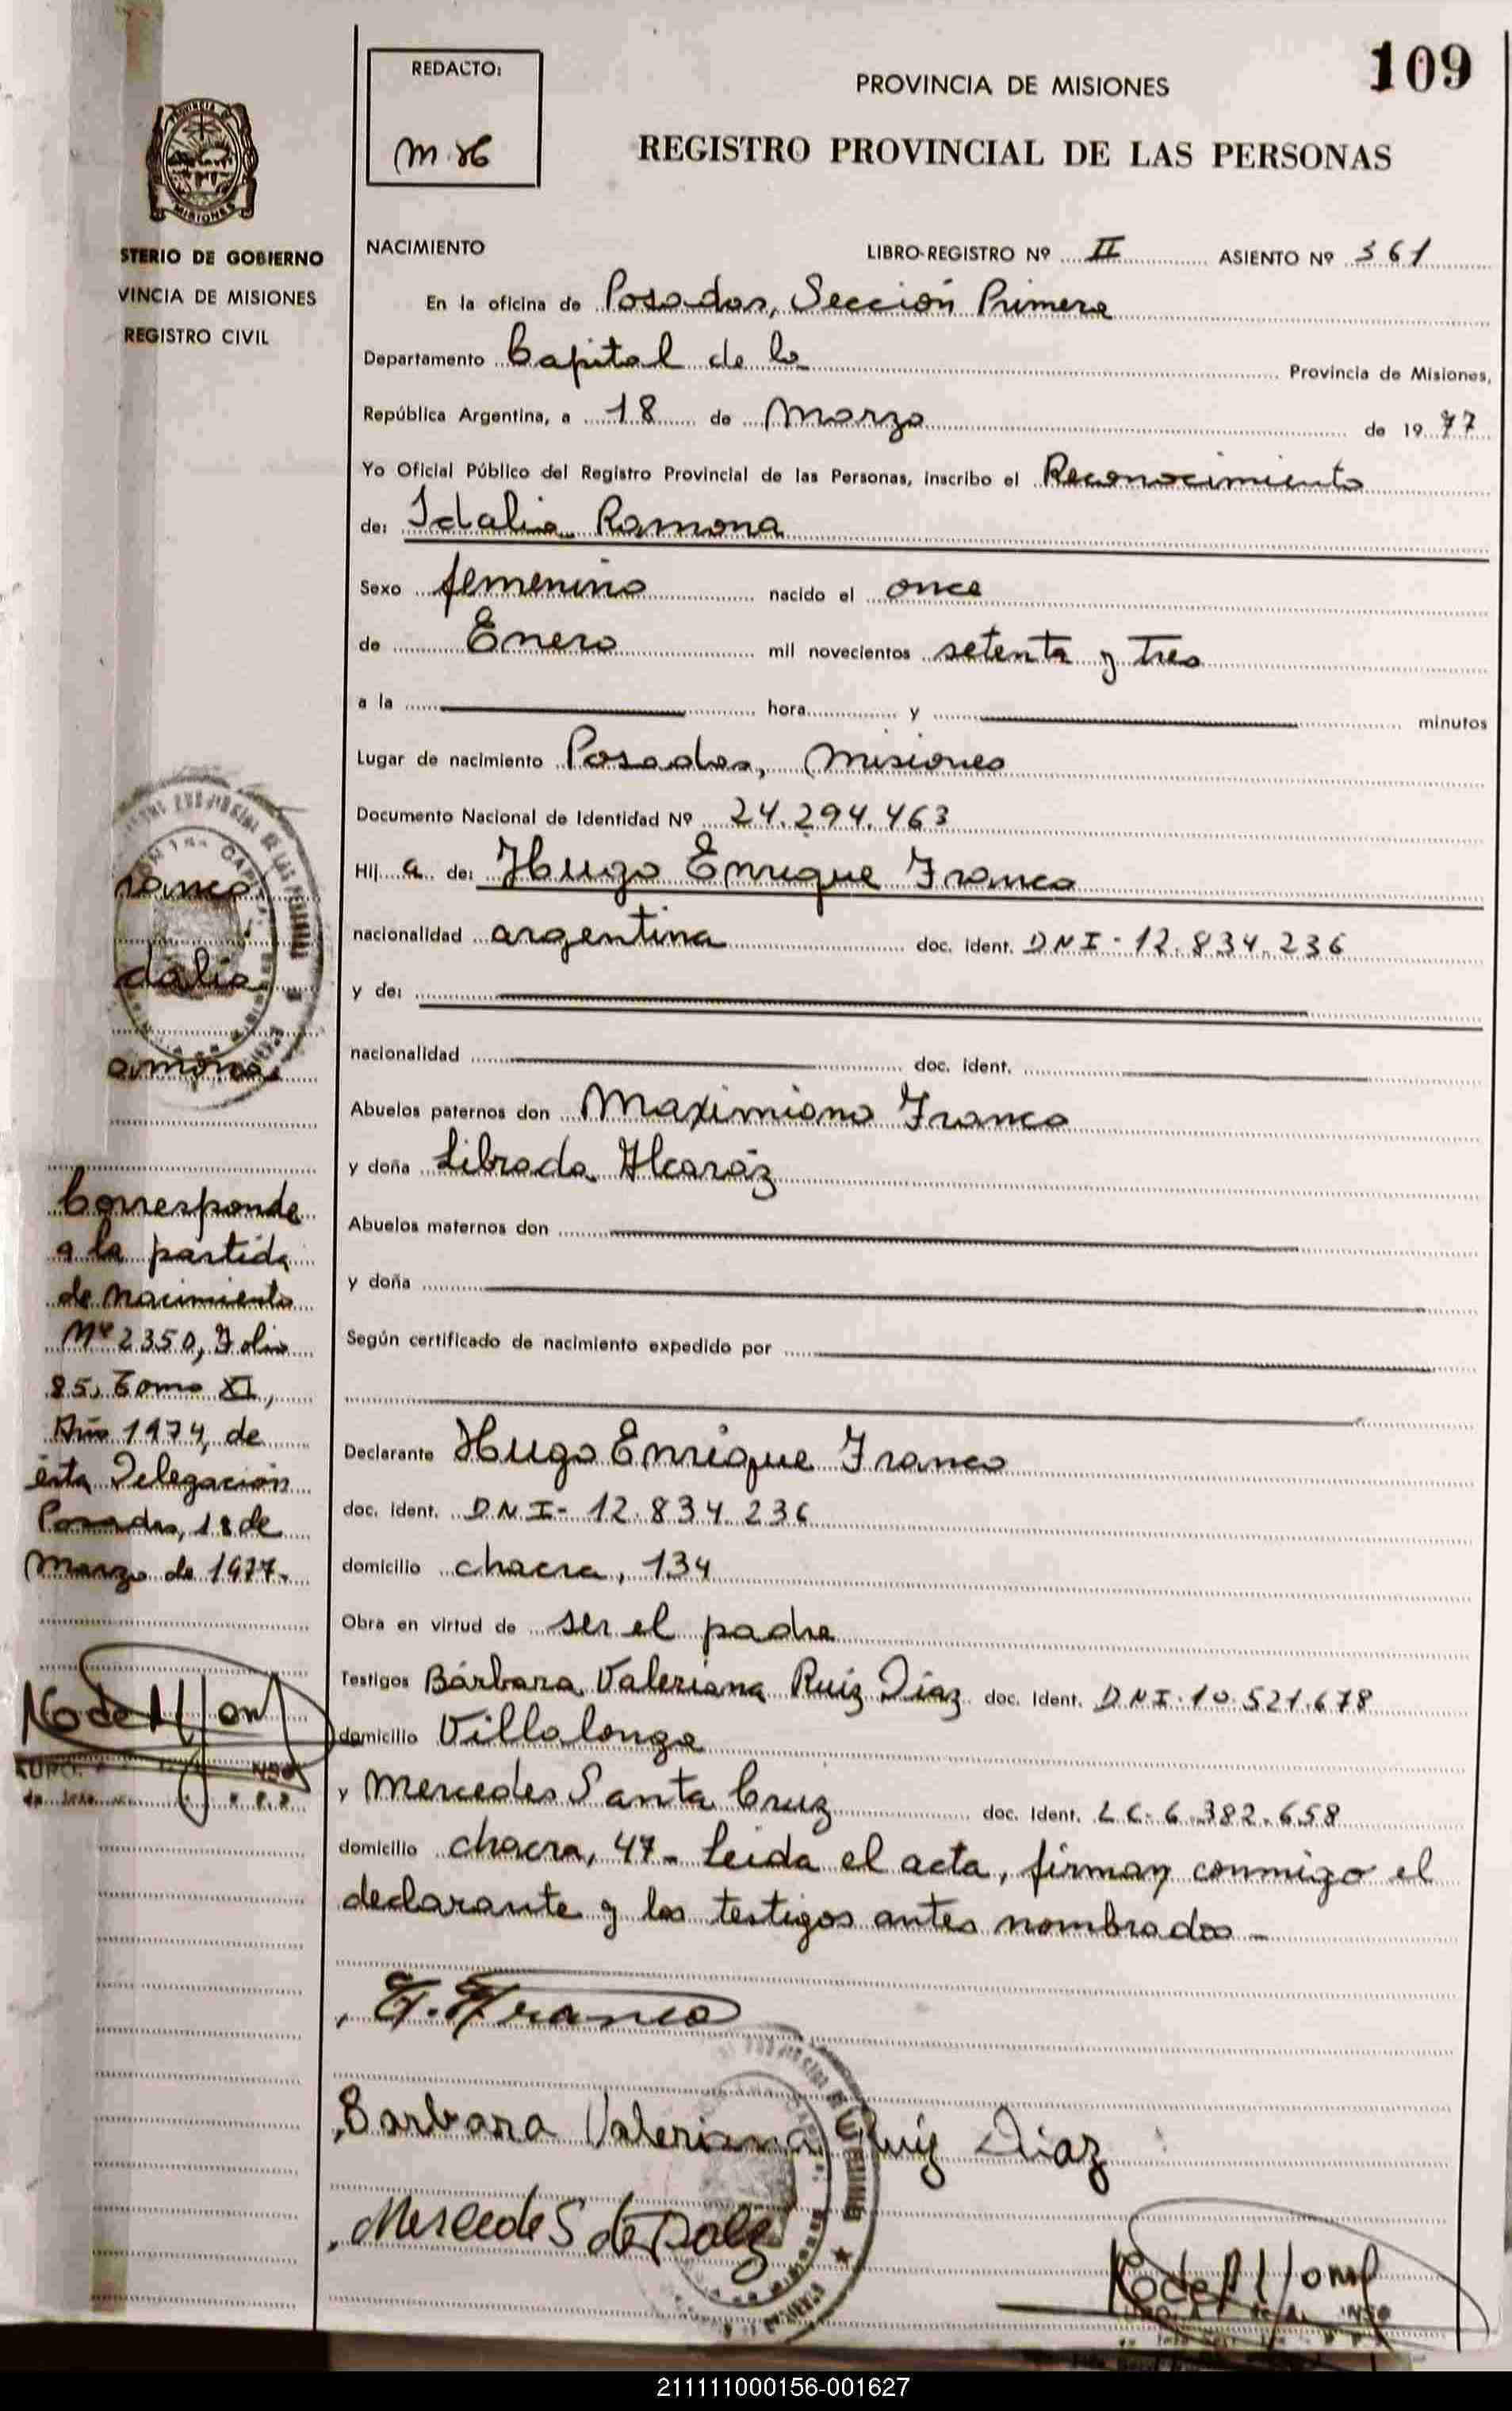 109
REDACTO:
PROVINCIA DE MISIONES
REGISTRO PROVINCIAL DE LAS PERSONAS
MISIONES
STERIO DE GOBIERNO
VINCIA DE MISIONES
REGISTRO CIVIL
NACIMIENTO LIBRO-REGISTRO Nº II ASIENTO Nº 361
En la oficina de Posadas, Sección Primera
Departamento Capital de la Provincia de Misiones,
República Argentina, a 18 de Marzo de 1977
Yo Oficial Público del Registro Provincial de las Personas, inscribo el Reconocimiento
de: Idalia Ramona
Sexo femenino nacido el once
de Enero mil novecientos setenta y tres
a la hora y minutos
Lugar de nacimiento Posadas, Misiones
Documento Nacional de Identidad Nº 24.294.463
Hij a de: Hugo Enrique Franco
nacionalidad argentina doc. ident. DNI-12.834.236
y de:
nacionalidad doc. ident.
Abuelos paternos don Maximiano Franco
y doña Librada Alcaráz
Abuelos maternos don
y doña
Según certificado de nacimiento expedido por
Declarante Hugo Enrique Franco
doc. ident. DNI-12.834.236
domicilio chacra, 134
Obra en virtud de ser el padre
Testigos Bárbara Valeriana Ruiz Diaz doc. ident. DNI-10.521.678
domicilio Villalonga
y Mercedes Santa Cruz doc. ident. LC-6.382.658
domicilio chacra, 47- Leida el acta, firman conmigo el
declarante y los testigos antes nombrados-
ranco
dalia
amona
Corresponde
a la partida
de Nacimiento
Nº 2350, Folio
85, Tomo XI,
Año 1974, de
ésta Delegación
Posadas, 18 de
Marzo de 1977-
H. Franco
Barbara Valeriana Ruiz Diaz
Mercede S de
211111000156-001627